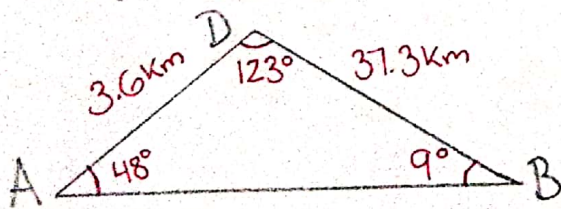 D
3.6km
123°
37.3km
A
48°
9°
B